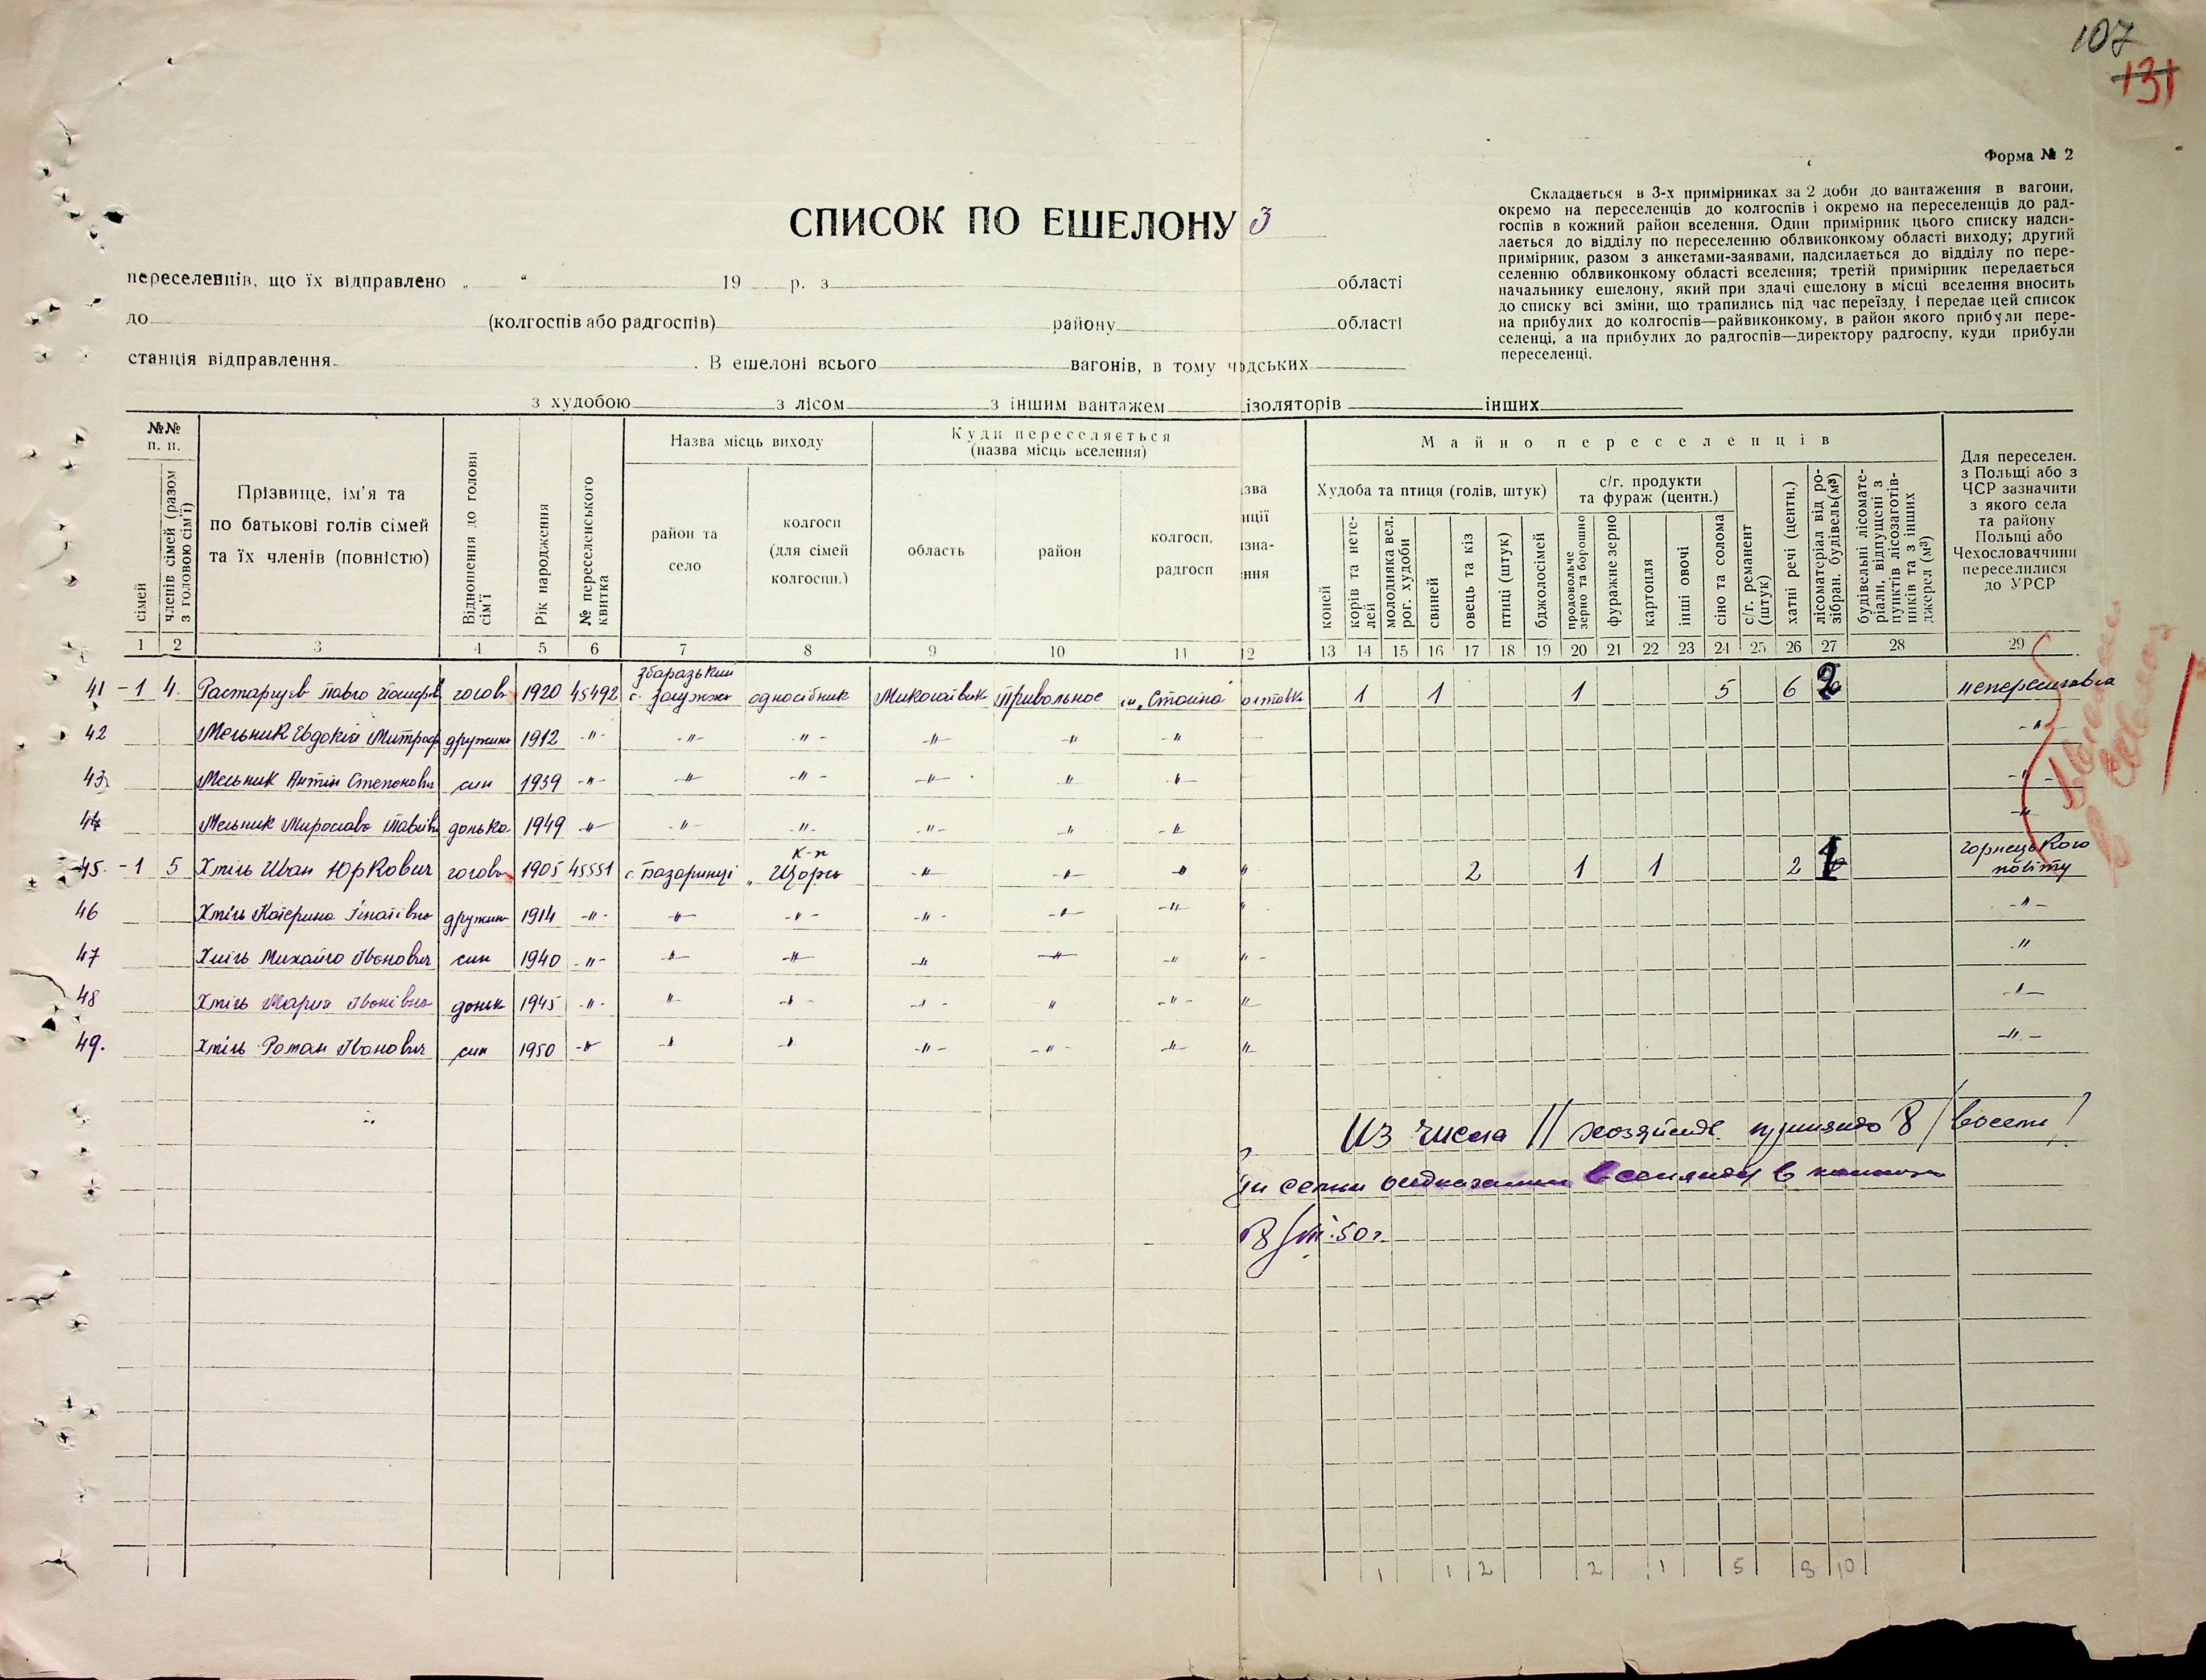 107
131
Форма № 2
СПИСОК ПО ЕШЕЛОНУ 3
Складається в 3-х примірниках за 2 доби до вантаження в вагони,
окремо на переселенців до колгоспів і окремо на переселенців до рад-
госпів в кожний район вселення. Один примірник цього списку надси-
лається до відділу по переселенню облвиконкому області виходу; другий
примірник, разом з анкетами-заявами, надсилається до відділу по пере-
селенню облвиконкому області вселення; третій примірник передається
начальнику ешелону, який при здачі ешелону в місці вселення вносить
до списку всі зміни, що трапились під час переїзду, і передає цей список
на прибулих до колгоспів—райвиконкому, в район якого прибули пере-
селенці, а на прибулих до радгоспів—директору радгоспу, куди прибули
переселенці.
переселенців, що їх відправлено „ “ 19 р. з області
до (колгоспів або радгоспів) району області
станція відправлення . В ешелоні всього вагонів, в тому чдських
з худобою з лісом з іншим вантажем ізоляторів інших
№№ п. п.
сімей
членів сімей (разом з головою сім'ї)
Прізвище, ім'я та
по батькові голів сімей
та їх членів (повністю)
Відношення до голови сім'ї
Рік народження
№ переселенського квитка
Назва місць виходу
район та
село
колгосп
(для сімей
колгоспн.)
Куди переселяється
(назва місць вселення)
область
район
колгосп,
радгосп
зва
нції
изна-
ння
Майно переселенців
Худоба та птиця (голів, штук)
коней
корів та нете-
лей
молодняка вел.
рог. худоби
свиней
овець та кіз
птиці (штук)
бджолосімей
с/г. продукти
та фураж (центн.)
продовольче
зерно та борошно
фуражне зерно
картопля
інші овочі
сіно та солома
с/г. реманент
(штук)
хатні речі (центн.)
лісоматеріал від ро-
зібран. будівель(м³)
будівельні лісомате-
ріали, відпущені з
пунктів лісозаготів-
ників та з інших
джерел (м³)
Для переселен.
з Польщі або з
ЧСР зазначити
з якого села
та району
Польщі або
Чехословаччини
переселилися
до УРСР
1 2 3 4 5 6 7 8 9 10 11 12 13 14 15 16 17 18 19 20 21 22 23 24 25 26 27 28 29
Збаразький
41 - 1 4. Павло голова 1920 45492 с. Залужжя односібник Миколаївськ Привольное 1 1 1 5 6 2
42 Мельник Євдокія Митроф дружина 1912 -"- -"- -"- -"- -"- -"- -"-
43 Мельник Антін Степонович син 1939 -"- -"- -"- -"- -"- -"- -"-
44 Мельник Мирослава Павлів донька 1949 -"- -"- -"- -"- -"- -"- -"-
к-п
45. - 1 5 Хміль Иван Юркович голова 1905 45551 с. Базаринці „ Щорса -"- -"- -"- " 2 1 1 2 1
повіту
46 Хміль Катерина Гнатівна дружина 1914 -"- -"- -"- -"- -"- -"- " -"-
47 Хміль Михайло Іванович син 1940 -"- -"- -"- -"- -"- -"- " - "
48 Хміль Мария Іванівна доньк 1945 -"- "- -"- -"- " -"- "- -"-
49. Хміль Роман Іванович син 1950 -"- -"- -"- -"- -"- -"- "- -"-
Из числа 11 хозяйств принято 8 /восемь/
8/III.50 г.
1 1 2 2 1 5 8 10